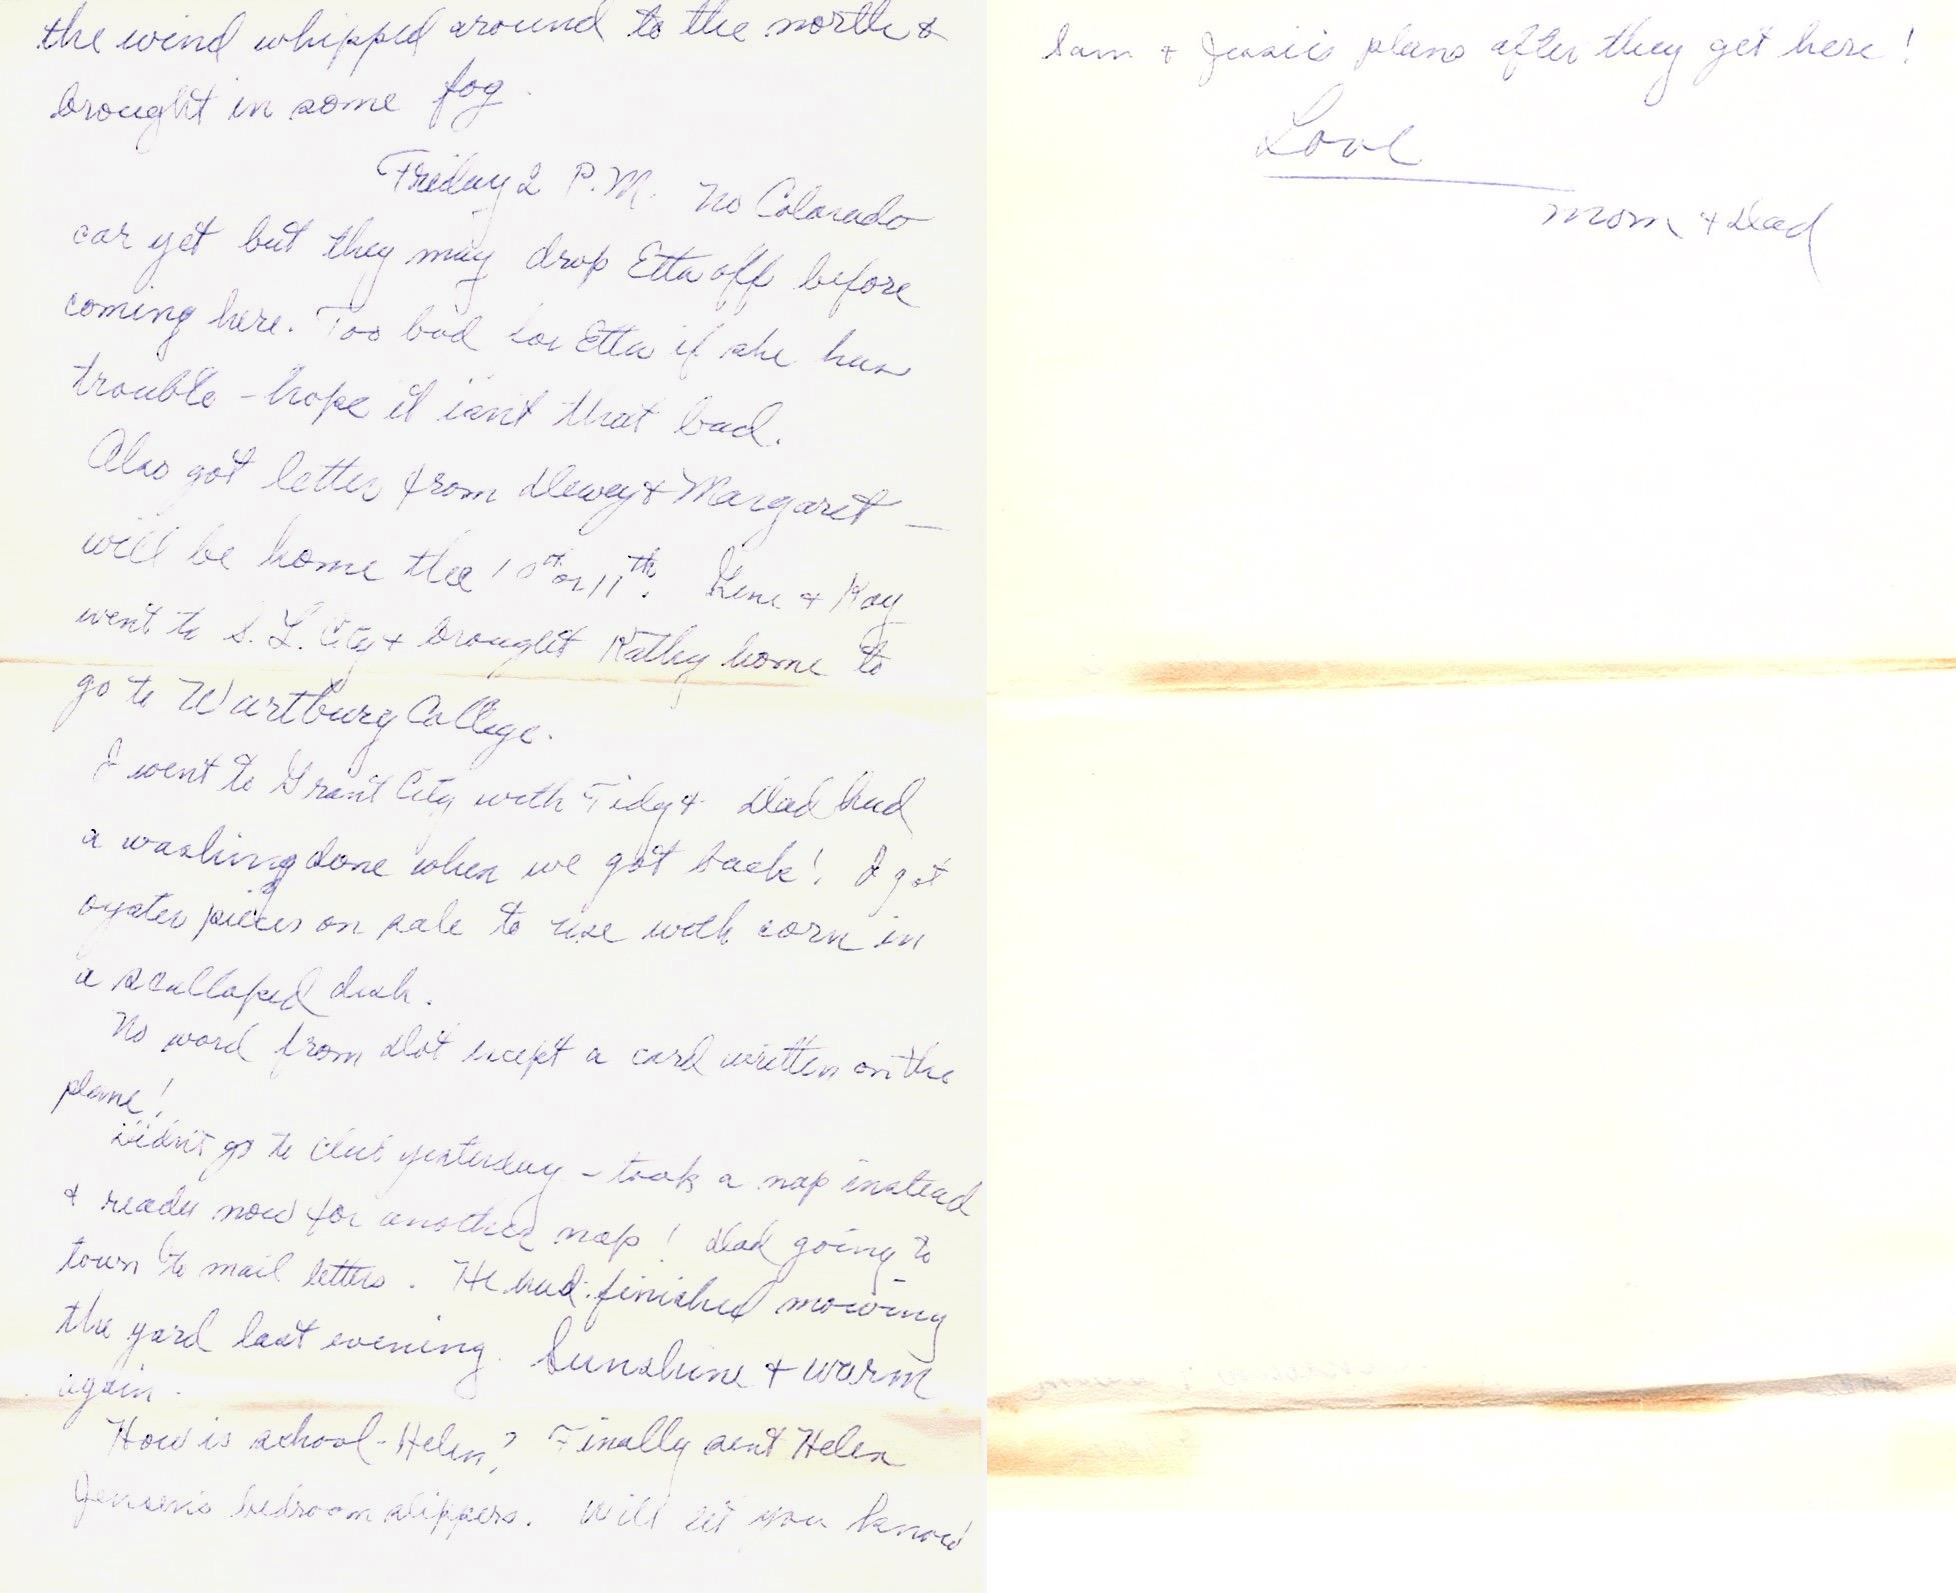 the wind whipped around to the north &
brought in some fog.
Friday 2 P.M. No Colorado
car yet but they may drop Etta off before
coming here. Too bad for Etta if she has
trouble - hope it isn't that bad.
Also got letter from Dewey & Margaret -
will be home the 10th or 11th. Gene & Kay
went to S. L. City & brought Kathy home to
go to Wartburg College.
I went to Grant City with Tidy & Dad had
a washing done when we got back! I got
oyster pieces on sale to use with corn in
a scalloped dish.
No word from Dot except a card written on the
plane!
Didn't go to club yesterday - took a nap instead
& ready now for another nap! Dad going to
town to mail letters. He had finished mowing
the yard last evening. Sunshine & warm
again.
How is school - Helen? Finally sent Helen
Jensen's bedroom slippers. Will let you know
Sam & Jessie's plans after they get here!
Love
Mom & Dad